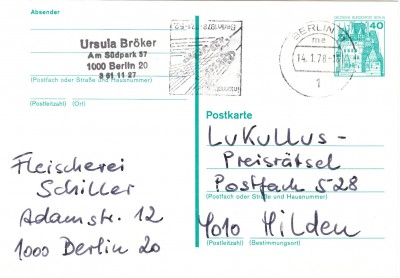 Absender
Ursula Bröker
Am Südpark 57
1000 Berlin 20
3 61 11 27
(Postfach oder Straße und Hausnummer)
(Postleitzahl) (Ort)
Fleischerei
Schiller
Adamstr. 12
1000 Berlin 20
BERLIN
14.1.78
1
DEUTSCHE BUNDESPOST BERLIN
40
Postkarte
Lukullus-
Preisrätsel
Postfach 528
(Postfach oder Straße und Hausnummer)
4010 Hilden
(Postleitzahl) (Bestimmungsort)